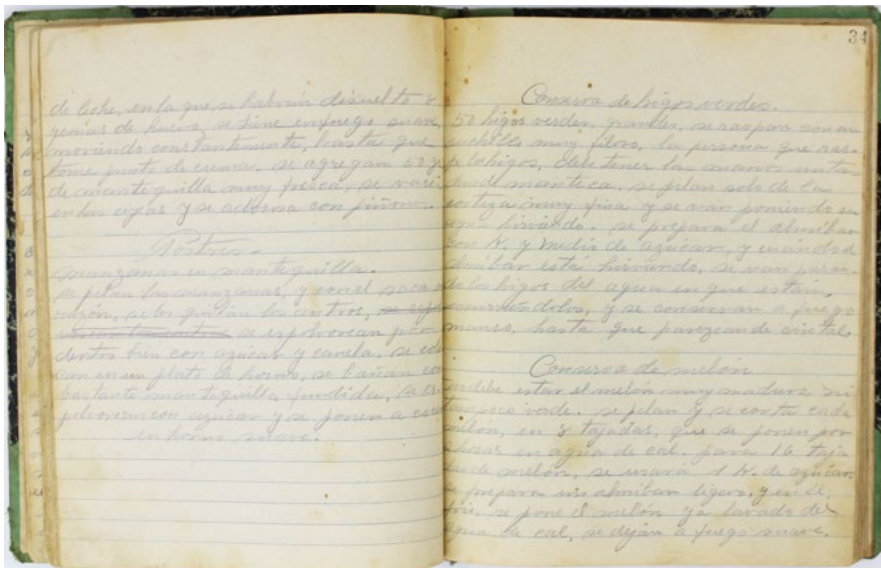 de leche, en la que, se habrán disuelto 8
yemas de huevo, se tiene en fuego suave,
moviendo constantemente, hasta que
tome punto de crema. se agregan 50 g.
de mantequilla muy fresca, se vacía
en las cajas y se adorna con piñones.
Postres.
manzanas en mantequilla.
se pelan las manzanas, y con el saca
razón, se les quitan los centros,
se espolvorean por
dentro bien con azúcar y canela, se colo
can en un plato de horno, se bañan con
bastante mantequilla fundida, se es
polvorean con azúcar y se ponen a cocer
en horno suave.
34
Conserva de higos verdes.
50 higos verdes, grandes, se raspan con un
cuchillo muy filoso, la persona que ras-
pe los higos, debe tener las manos unta
das de manteca, se pelan solo de la
corteza muy fina y se van poniendo en
agua hirviendo. se prepara el almíbar
con K. y medio de azúcar, y cuándo el
almíbar está hirviendo, se van pasan-
do los higos del agua en que están,
exprimiéndolos, y se conservan a fuego
manso, hasta que parezcan de cristal.
Conserva de melón
no debe estar el melón muy maduro ni
tampoco verde. se pelan y se corta cada
melón, en 8 tajadas, que se ponen por
horas en agua de cal. para 16 taja
das de melón, se usará 1 K. de azúcar.
se prepara un almíbar ligero, y en él,
frío, se pone el melón ya lavado del
agua de cal, se dejan a fuego suave.